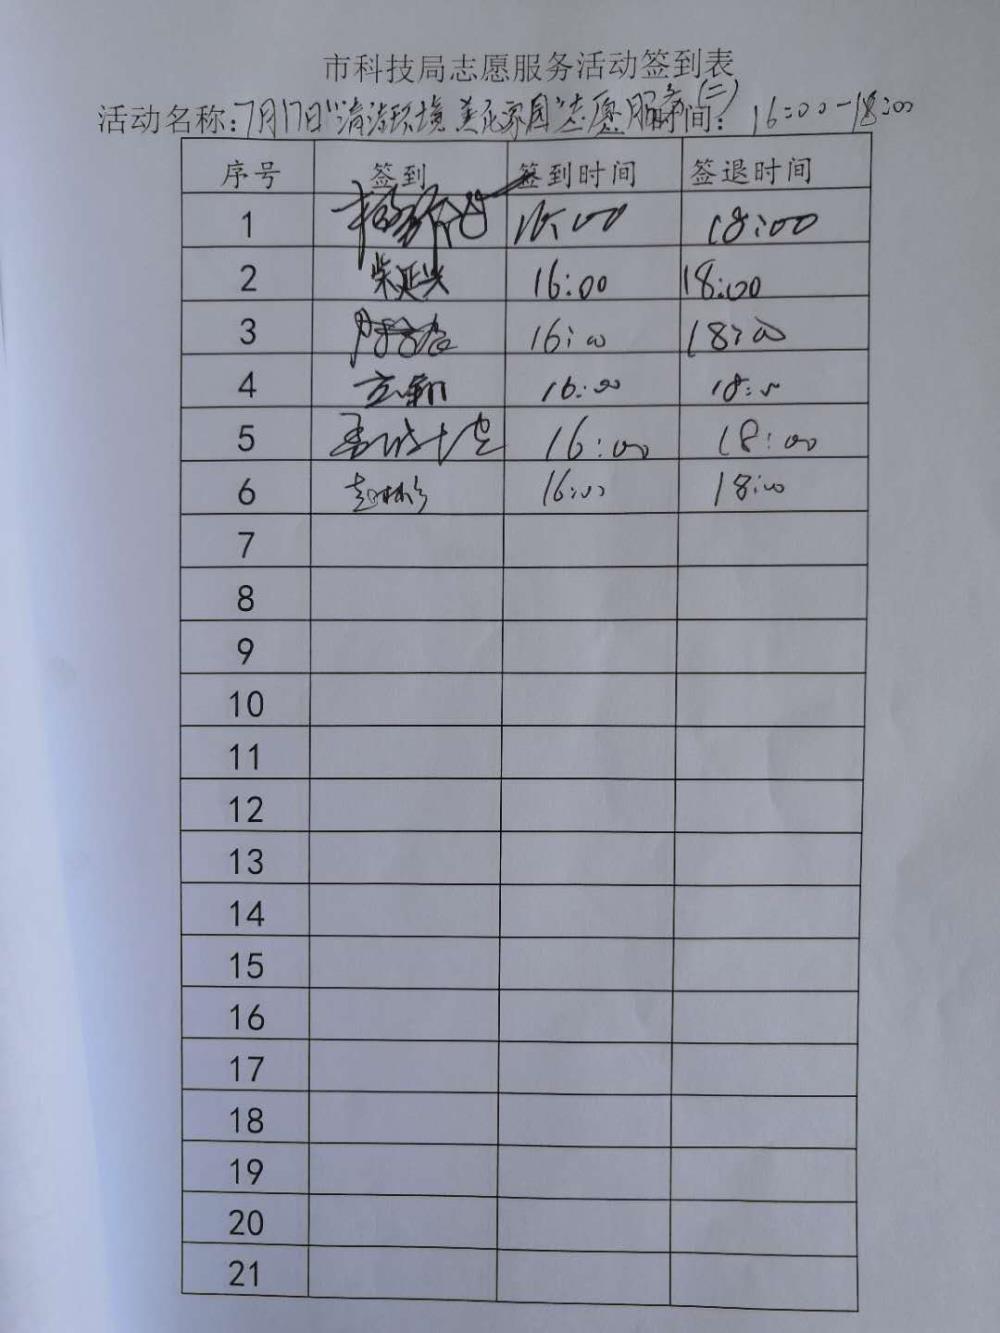 市科技局志愿服务活动签到表
活动名称：7月17日"清洁环境 美化家园"志愿服务(二) 时间： 16:00-18:00
序号 签到 签到时间 签退时间
1 16:00 18:00
2 柴延兴 16:00 18:00
3 16:00 18:00
4 16:00 18:00
5 16:00 18:00
6 16:00 18:00
7
8
9
10
11
12
13
14
15
16
17
18
19
20
21